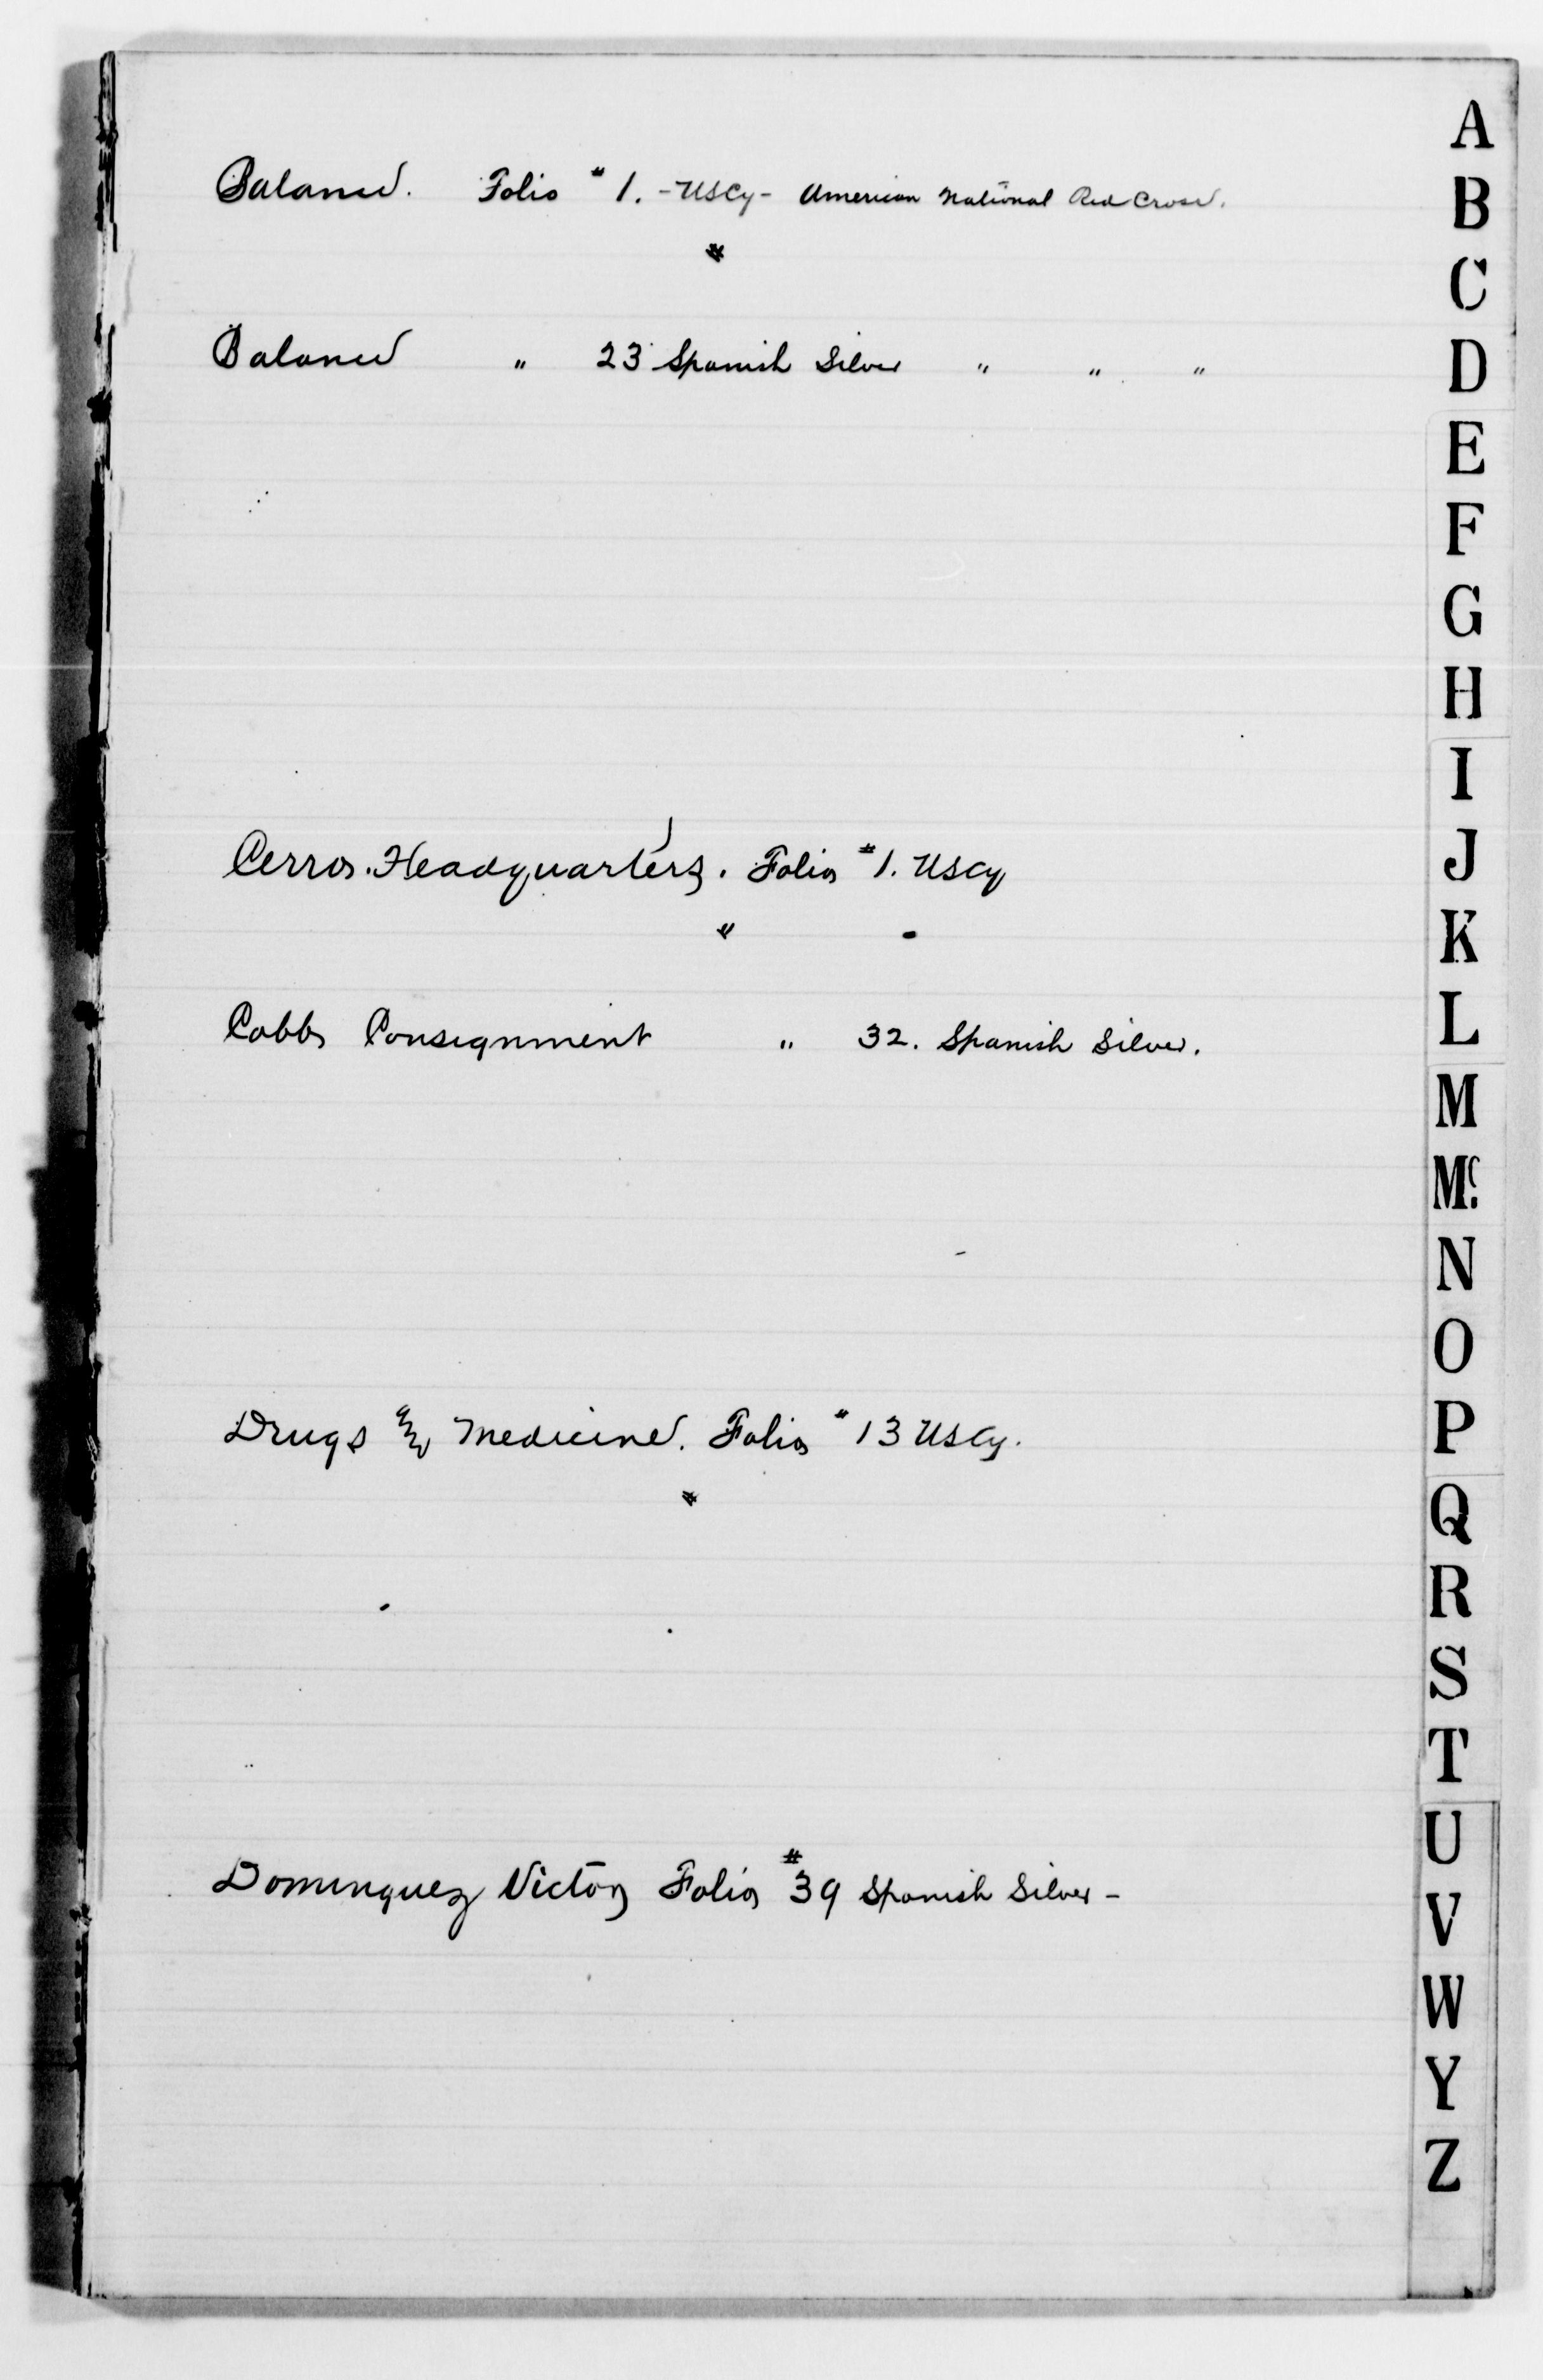 Balance. Folio #1. - USCy - American National Red Cross.
"
Balance " 23 Spanish Silver " " "
Cerro. Headquarters. Folio #1. USCy
"
Cobbs Consignment " 32. Spanish Silver.
Drugs & Medicine. Folio #13 USCy.
"
Dominguez Victor Folio #39 Spanish Silver -
A
B
C
D
E
F
G
H
I
J
K
L
M
Mc
N
O
P
Q
R
S
T
U
V
W
Y
Z